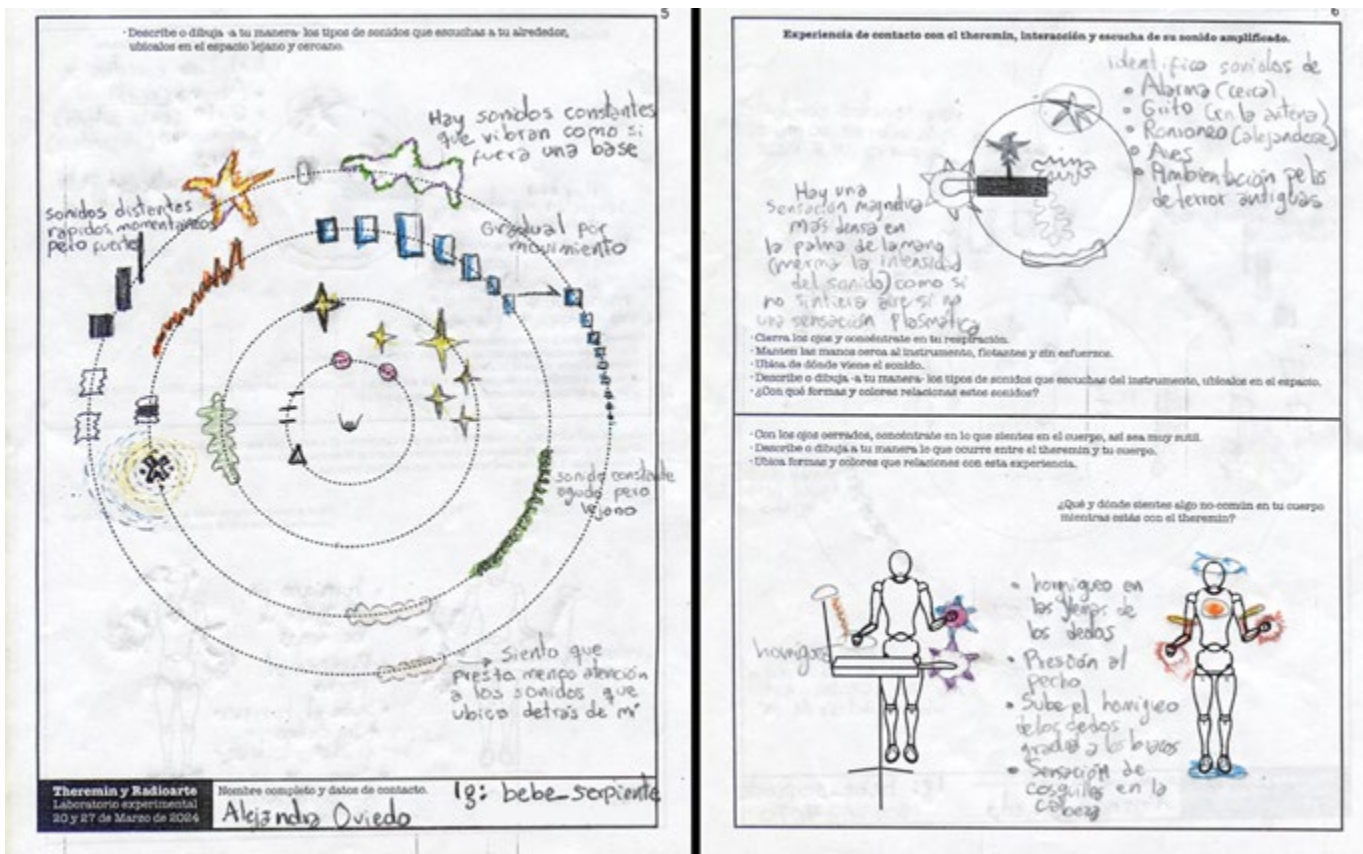 5
· Describe o dibuja -a tu manera- los tipos de sonidos que escuchas a tu alrededor,
ubícalos en el espacio lejano y cercano.
Hay sonidos constantes
que vibran como si
fuera una base
sonidos distentes
rapidos, momentaneos
pero fuerte
Gradual por
movimiento
sonido constante
agudo pero
lejano
Siento que
presto menos atención
a los sonidos que
ubico detrás de mi
Theremin y Radioarte
Laboratorio experimental
20 y 27 de Marzo de 2024
Nombre completo y datos de contacto.
Ig: bebe_serpiente
Alejandra Oviedo
6
Experiencia de contacto con el theremin, interacción y escucha de su sonido amplificado.
identifico sonidos de
• Alarma (cerca)
• Grito (en la antena)
• Ronroneo (alejandose)
• Aves
• Ambientación pelis
de terror antiguas
Hay una
sensación magnética
mas densa en
la palma de la mano
(merma la intensidad
del sonido) como si
no sintiera aire si no
una sensación Plasmática
· Cierra los ojos y concéntrate en tu respiración.
· Manten las manos cerca al instrumento, flotantes y sin esfuerzos.
· Ubica de dónde viene el sonido.
· Describe o dibuja -a tu manera- los tipos de sonidos que escuchas del instrumento, ubícalos en el espacio.
· ¿Con qué formas y colores relacionas estos sonidos?
· Con los ojos cerrados, concéntrate en lo que sientes en el cuerpo, así sea muy sutil.
· Describe o dibuja a tu manera lo que ocurre entre el theremin y tu cuerpo.
· Ubica formas y colores que relaciones con esta experiencia.
¿Qué y dónde sientes algo no-común en tu cuerpo
mientras estás con el theremin?
hormigueo
• hormigueo en
las yemas de
los dedos
• Presión al
pecho
• Sube el hormigueo
de los dedos
gradual a los brazos
• Sensación de
cosquillas en la
cabeza